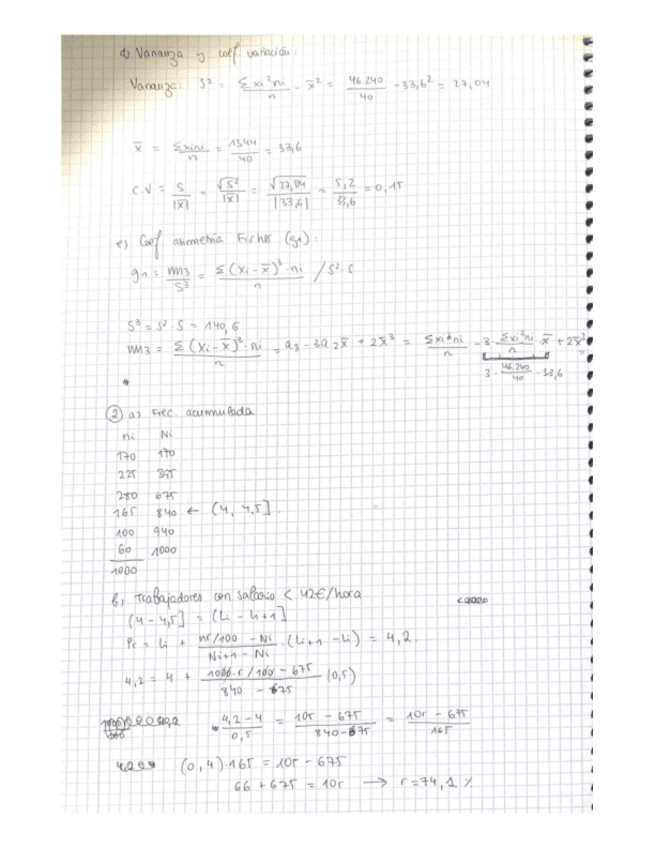 d) Varianza y coef. variación:
Varianza: S² = Σxi²ni / n - x̄² = 46.240 / 40 - 33,6² = 27,04
x̄ = Σxini / n = 1344 / 40 = 33,6
C.V = S / |x̄| = √S² / |x̄| = √27,04 / |33,6| = 5,2 / 33,6 = 0,15
e) Coef asimetría Fisher (g1):
g1 = m3 / S³ = Σ(xi - x̄)³·ni / n / S²·S
S³ = S²·S = 140,6
m3 = Σ(xi - x̄)³·ni / n = a3 - 3a2x̄ + 2x̄³ = Σxi³ni / n - 3·Σxi²ni / n·x̄ + 2x̄³ =
3·46.240 / 40·33,6
② a) Frec. acumulada
ni Ni
170 170
225 395
280 675
165 840 ← (4, 4,5].
100 940
60 1000
1000
b) Trabajadores con salario < 4,2€/hora
(4 - 4,5] = (Li - Li+1]
Pr = Li + nr/100 - Ni / Ni+1 - Ni ·(Li+1 - Li) = 4,2.
4,2 = 4 + 1000·r/100 - 675 / 840 - 675 (0,5)
4,2 - 4 / 0,5 = 10r - 675 / 840 - 675 = 10r - 675 / 165
(0,4)·165 = 10r - 675
66 + 675 = 10r → r = 74,1 %